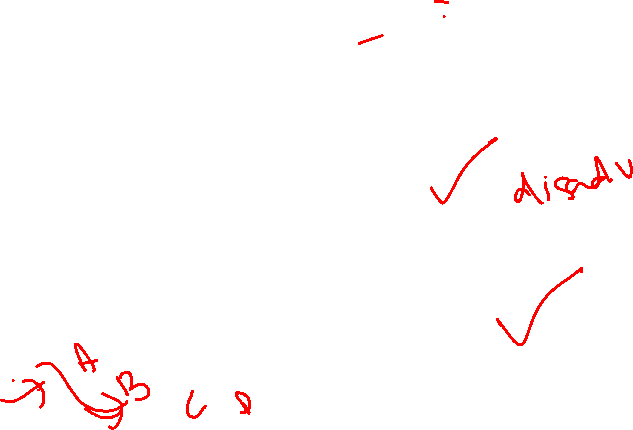 disadv
A
B C D